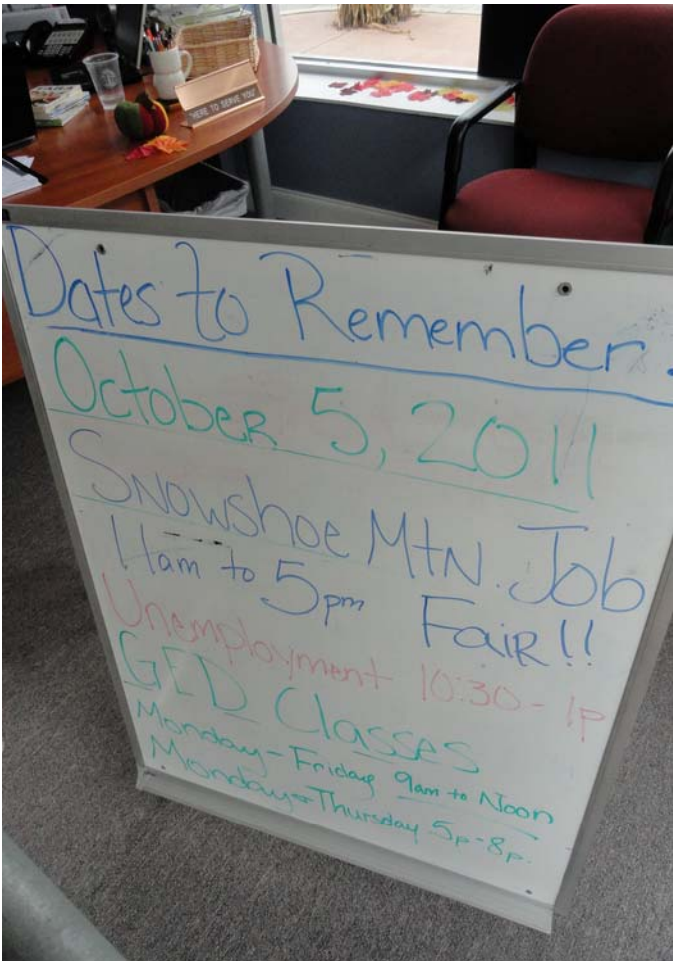 "HERE TO SERVE YOU"
Dates to Remember.
October 5, 2011
Snowshoe Mtn. Job
11am to 5pm Fair!!
Unemployment 10:30 - 1p
GED Classes
Monday - Friday 9am to Noon
Monday - Thursday 5p - 8p.